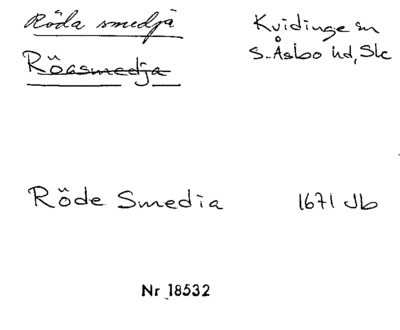 Röda smedja
Kvidinge sn
Röasmedja
S. Åsbo hd, Sk
Röde Smedia 1671 Jb
Nr 18532